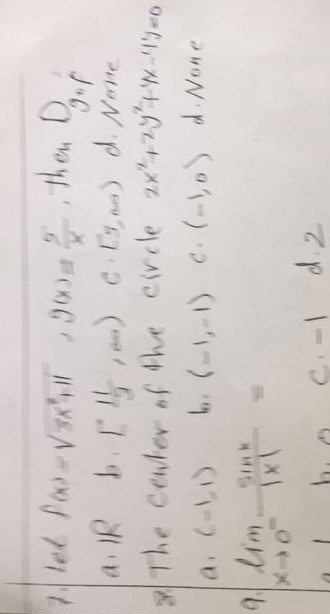 7. let f(x) = √3x²+11 , g(x) = 5/x , then D gof
a. IR b. [ 11/3 , ∞) c. [3, ∞) d. None
8. The center of the circle 2x²+2y²+4x-4y=0
a. (-1,1) b. (-1,-1) c. (-1,0) d. None
9. lim x→0⁻ sinx/|x| =
a. 1 b. 0 c. -1 d. 2